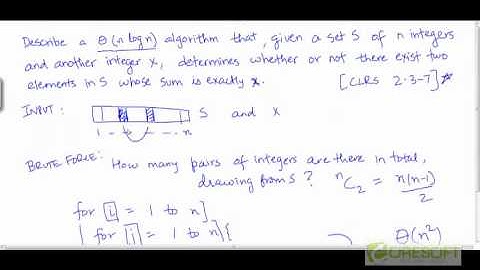 Describe a Θ(n log n) algorithm that, given a set S of n integers
and another integer x, determines whether or not there exist two
elements in S whose sum is exactly x. [CLRS 2.3-7]*
INPUT: S and X
1 - - - n
BRUTE FORCE: How many pairs of integers are there in total,
drawing from S? ⁿC₂ = n(n-1)/2
for i = 1 to n]
for i = 1 to n]{ Θ(n²)
CORESOFT